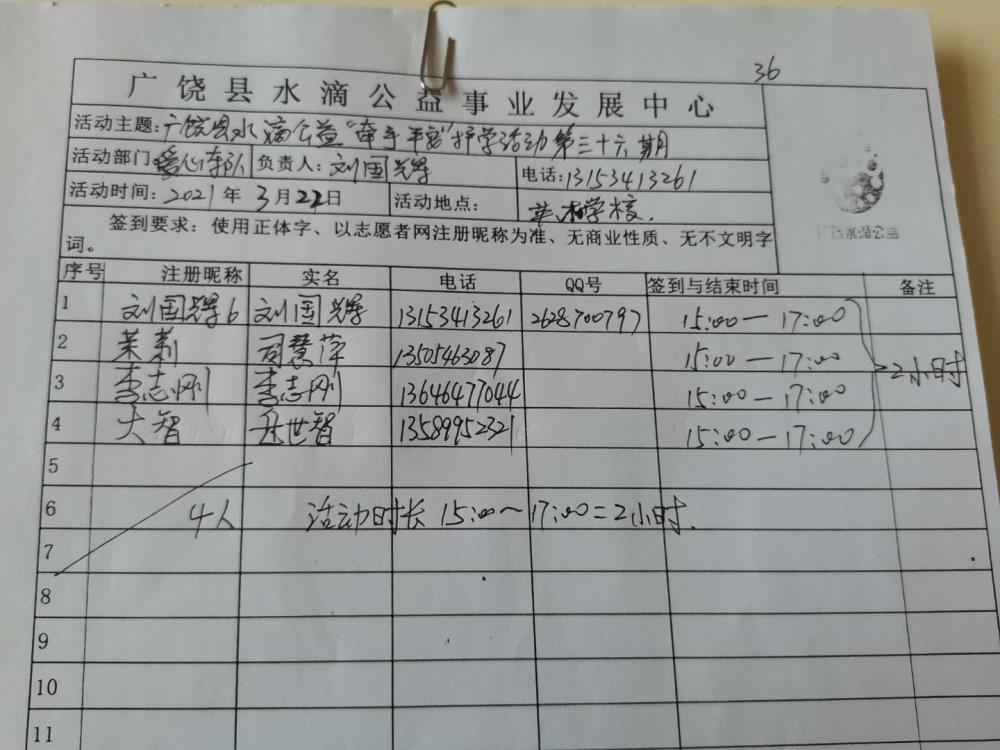 36
广饶县水滴公益事业发展中心
活动主题:广饶县水滴公益"牵手平安"护学活动第三十六期
活动部门:爱心车队 负责人:刘国辉 电话:13153413261
活动时间:2021年3月22日 活动地点: 英才学校.
签到要求:使用正体字、以志愿者网注册昵称为准、无商业性质、无不文明字
词。
广饶水滴公益
序号 注册昵称 实名 电话 QQ号 签到与结束时间 备注
1 刘国辉6 刘国辉 13153413261 2628700797 15:00—17:00
2 茉莉 司慧萍 13505463087 15:00—17:00 2小时
3 李志刚 李志刚 13646477044 15:00—17:00
4 大智 岳世智 13589952321 15:00—17:00
5
6 4人 活动时长 15:00~17:00=2小时.
7
8
9
10
11